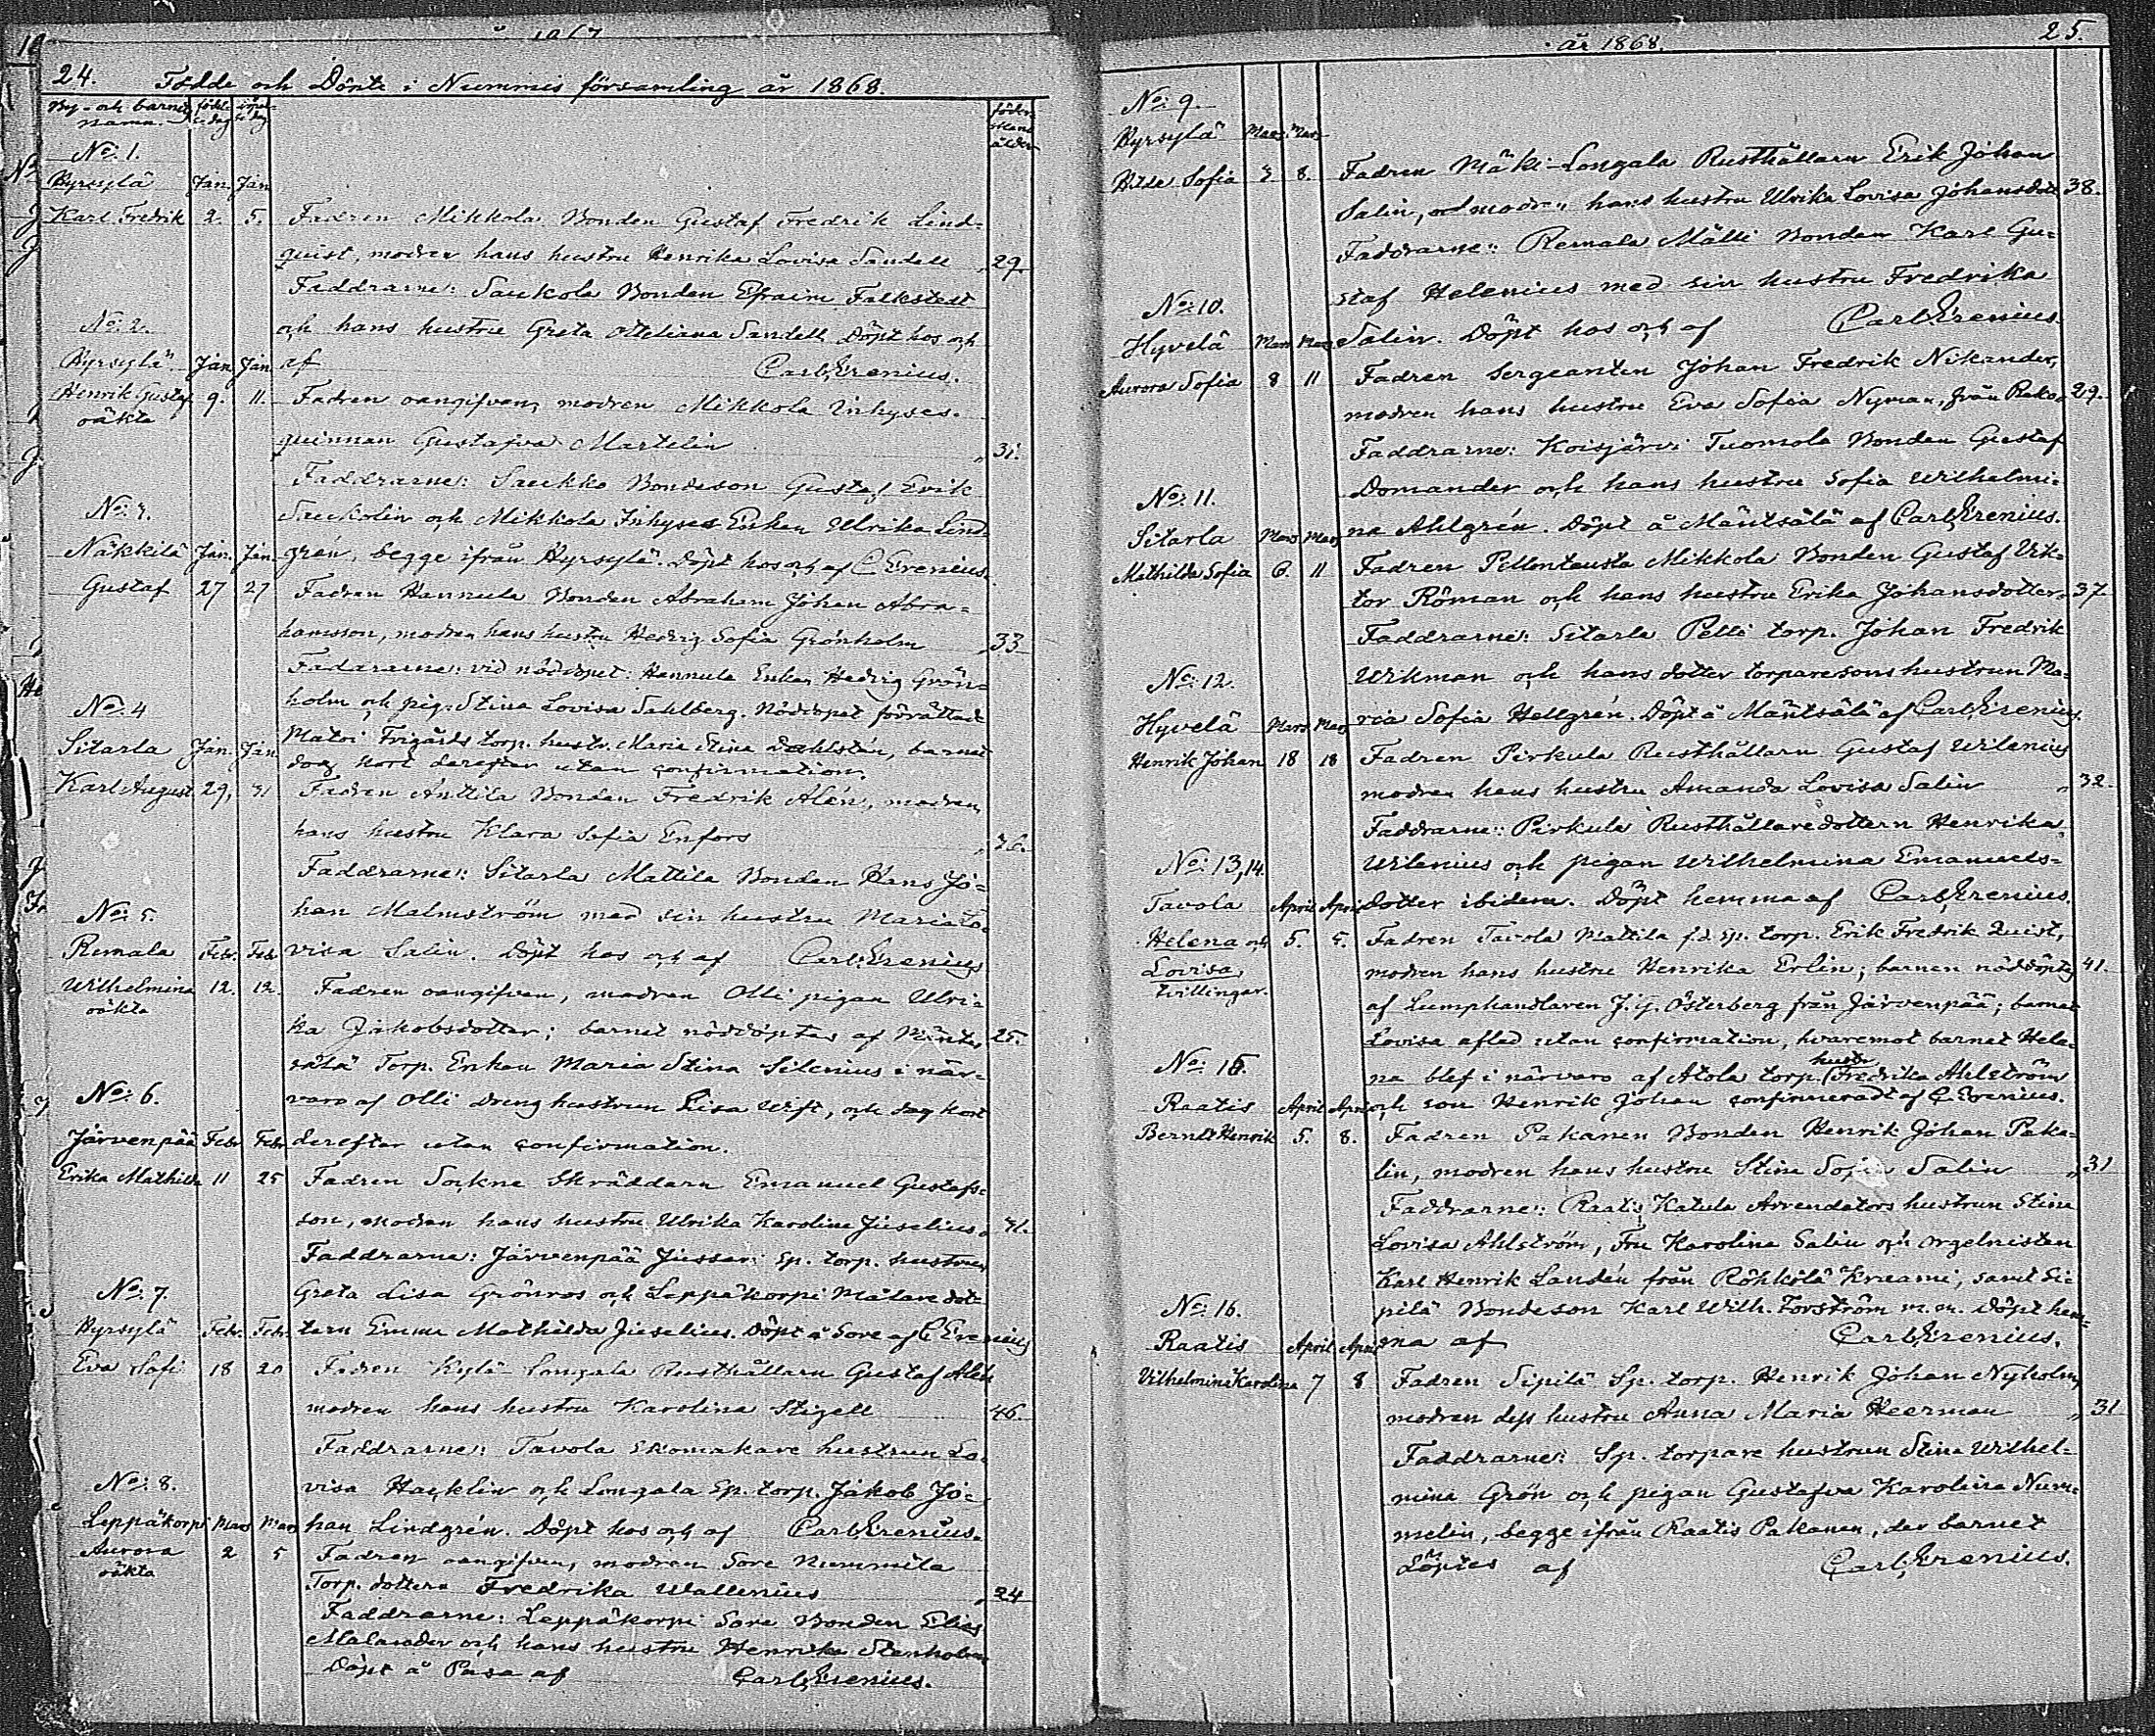 24. Födde och Döpte i Nummis församling år 1868.
By- och barnets namn. födelsedag döpelsedag föderskans ålder
No: 1.
Hyrsylä Jan. Jan.
Karl Fredrik 2. 5. Fadren Mikkola Bonden Gustaf Fredrik Lind-
quist, modren hans hustru Henrika Lovisa Sandell „ 29.
Faddrarne: Saukola Bonden Efraim Falkstedt
No: 2. och hans hustru Greta Otteliana Sandell. Döpt hos och
Hyrsylä Jan. Jan. af Carl Erenius.
Henrik Gustaf 9. 11. Fadren oangifven, modren Mikkola Inhyses-
oäkta
quinnan Gustafva Martelin „ 31.
Faddrarne: Saukko Bondeson Gustaf Erik
No: 3. Saukolin och Mikkola Inhyses Enkan Ulrika Lind-
Näkkilä Jan. Jan. grén, begge ifrån Hyrsylä. Döpt hos och af C Erenius.
Gustaf 27 27 Fadren Hannula Bonden Abraham Johan Abra-
hamsson, modren hans hustru Hedvig Sofia Grönholm „ 33
Faddrarne: vid nöddopet: Hannula Enkan Hedvig Grön-
holm och pig. Stina Lovisa Sahlberg. Nöddopet förrättade
No: 4 Matoi Frigårds torp. hustr. Maria Stina Dahlstén, barnet
Sitarla Jan. Jan. dog kort derefter utan confirmation.
Karl August 29, 31 Fadren Anttila Bonden Fredrik Alén, modren
hans hustru Klara Sofia Enfors „ 36.
Faddrarne: Sitarla Mattila Bonden Hans Jo-
No: 5. han Malmström med sin hustru Maria Lo-
Remala Febr. Febr. visa Salin. Döpt hos och af Carl Erenius
Wilhelmina 12. 12. Fadren oangifven, modren Olli pigan Ulri-
oäkta
ka Jakobsdotter; barnet nöddöptes af Mänt- 25.
sälä Torp. Enkan Maria Stina Silenius i när-
No: 6. varo af Olli Dreng hustrun Lisa Wift, och dog kort
Järvenpää Febr. Febr. derefter utan confirmation.
Erika Mathilda 11 25 Fadren Sockne Skräddarn Emanuel Gustafs-
son, modren hans hustru Ulrika Karolina Juselius „ 41.
Faddrarne: Järvenpää Jussari Sp. torp. hustrun
No: 7. Greta Lisa Grönroos och Leppäkorpi Målaredot-
Hyrsylä Febr. Febr. tern Emma Mathilda Juselius. Döpt å Sore af C Erenius
Eva Sofi 18 20 Fadren Kylä-Longala Rusthållarn Gustaf Alén
modren hans hustru Karolina Stigell 46.
Faddrarne: Tavola Skomakare hustrun Lo-
No: 8. visa Hacklin och Longala Sp. torp. Jakob Jo-
Leppäkorpi Mars Mars han Lindgrén. Döpt hos och af Carl Erenius.
Aurora 2 5 Fadren oangifven, modren Sore Nummila
oäkta
Torp. dottern Fredrika Wallenius „ 24
Faddrarne: Leppäkorpi Sore Bonden Elias
Malander och hans hustru Henrika Stenholm
Döpt å Pusa af Carl Erenius.
år 1868. 25.
No: 9.
Hyrsylä Mars. Mars
Hilda Sofia 3 8. Fadren Mäki-Longala Rusthållarn Erik Johan
Salin, och modren hans hustru Ulrika Lovisa Johansdott. 38.
Faddrarne: Remala Mälli Bonden Karl Gu-
No: 10. staf Helenius med sin hustru Fredrika
Hyvelä Mars Mars Salin. Döpt hos och af Carl Erenius.
Aurora Sofia 8 11 Fadren Sergeanten Johan Fredrik Nikander,
modren hans hustru Eva Sofia Nyman, från Pako „ 29.
Faddrarne: Koisjärvi Tuomola Bonden Gustaf
No: 11. Domander och hans hustru Sofia Wilhelmi-
Sitarla Mars Mars na Ahlgrén. Döpt å Mäntsälä af Carl Erenius.
Mathilda Sofia 6. 11 Fadren Pellontausta Mikkola Bonden Gustaf Vik-
tor Röman och hans hustru Erika Johansdotter „ 37
Faddrarne: Sitarla Pelli torp. Johan Fredrik
No: 12. Wikman och hans dotter torparesons hustrun Ma-
Hyvelä Mars Mars ria Sofia Hellgrén. Döpt å Mäntsälä af Carl Erenius.
Henrik Johan 18 18 Fadren Pirkula Rusthållarn Gustaf Wilenius
modren hans hustru Amanda Lovisa Salin „ 32.
Faddrarne: Pirkula Rusthållaredottern Henrika
No: 13, 14. Wilenius och pigan Wilhelmina Emanuels-
Tavola April April dotter ibidem. Döpt hemma af Carl Erenius.
Helena och 5. 5. Fadren Tavola Mattila f.d. sp. torp. Erik Fredrik Quist,
Lovisa, modren hans hustru Henrika Erlin; barnen nöddöptes 41.
tvillingar. af Lumphandlaren J. G. Österberg från Järvenpää; barnet
Lovisa afled utan confirmation, hvaremot barnet Hele-
No: 15. na blef i närvaro af Atola torp. hustr. Fredrika Ahlström
Raatis April April och son Henrik Johan confirmeradt af C Erenius.
Berndt Henrik 5. 8. Fadren Pakanen Bonden Henrik Johan Paka-
lin, modren hans hustru Stina Sofia Salin „ 31
Faddrarne: Raatis Katula Arrendators hustrun Stina
Lovisa Ahlström, Fru Karolina Salin och orgelnisten
Karl Henrik Landén från Röhkölä Kruami, samt Si-
No: 16. pilä Bondeson Karl Wilh. Forström m.m. Döpt hem-
Raatis April April ma af Carl Erenius.
Vilhelmina Karolina 7 8 Fadren Sipilä Sp. torp. Henrik Johan Nyholm,
modren dess hustru Anna Maria Heerman „ 31
Faddrarne: Sp. torpare hustrun Stina Wilhel-
mina Grön och pigan Gustafva Karolina Num-
melin, begge ifrån Raatis Pakanen, der barnet
Döptes af Carl Erenius.